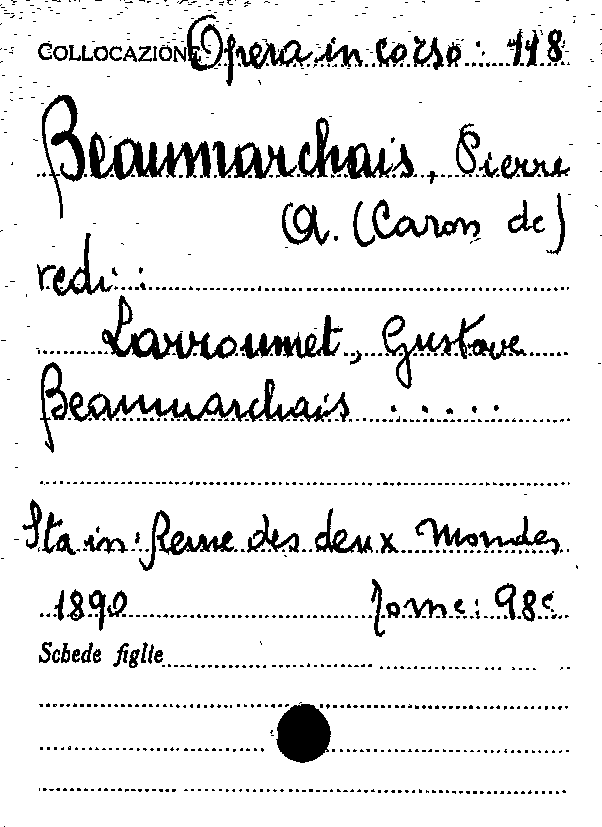 COLLOCAZIONE Opera in corso: 118
Beaumarchais, Pierre
A. (Caron de)
vedi:
Larroumet, Gustave
Beaumarchais .....
Sta in: Revue des deux Mondes
1890 Tome: 98e
Schede figlie